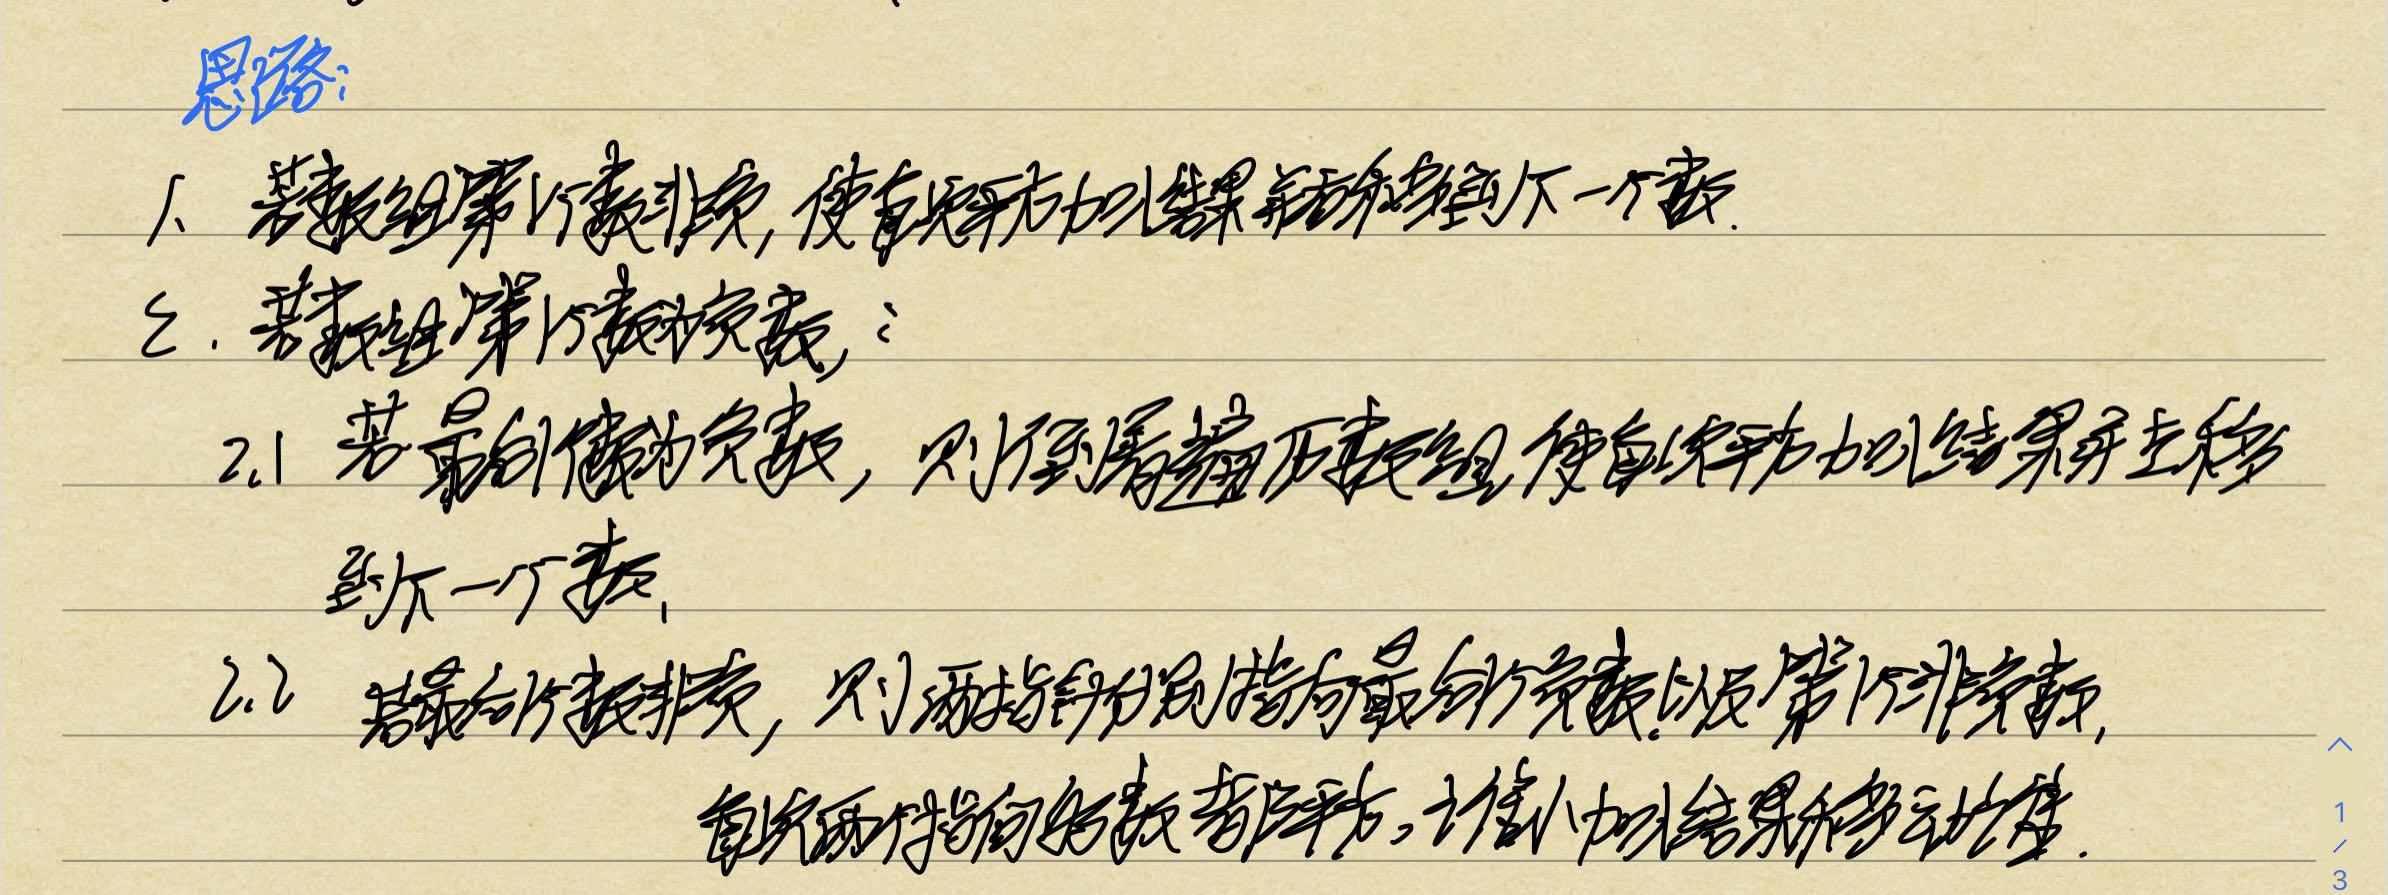 思路:
1. 若数组第1个数非负,使每次平方加入结果并右移到下一个数.
2. 若数组第1个数为负数,:
2.1 若最后1个数为负数, 则倒着遍历数组,使每次平方加入结果并左移
到下一个数.
2.2 若最后1个数非负, 则两指针分别指向最后1个负数以及第1个非负数,
每次两个指向的数 平方, 小加入结果移动
1/3